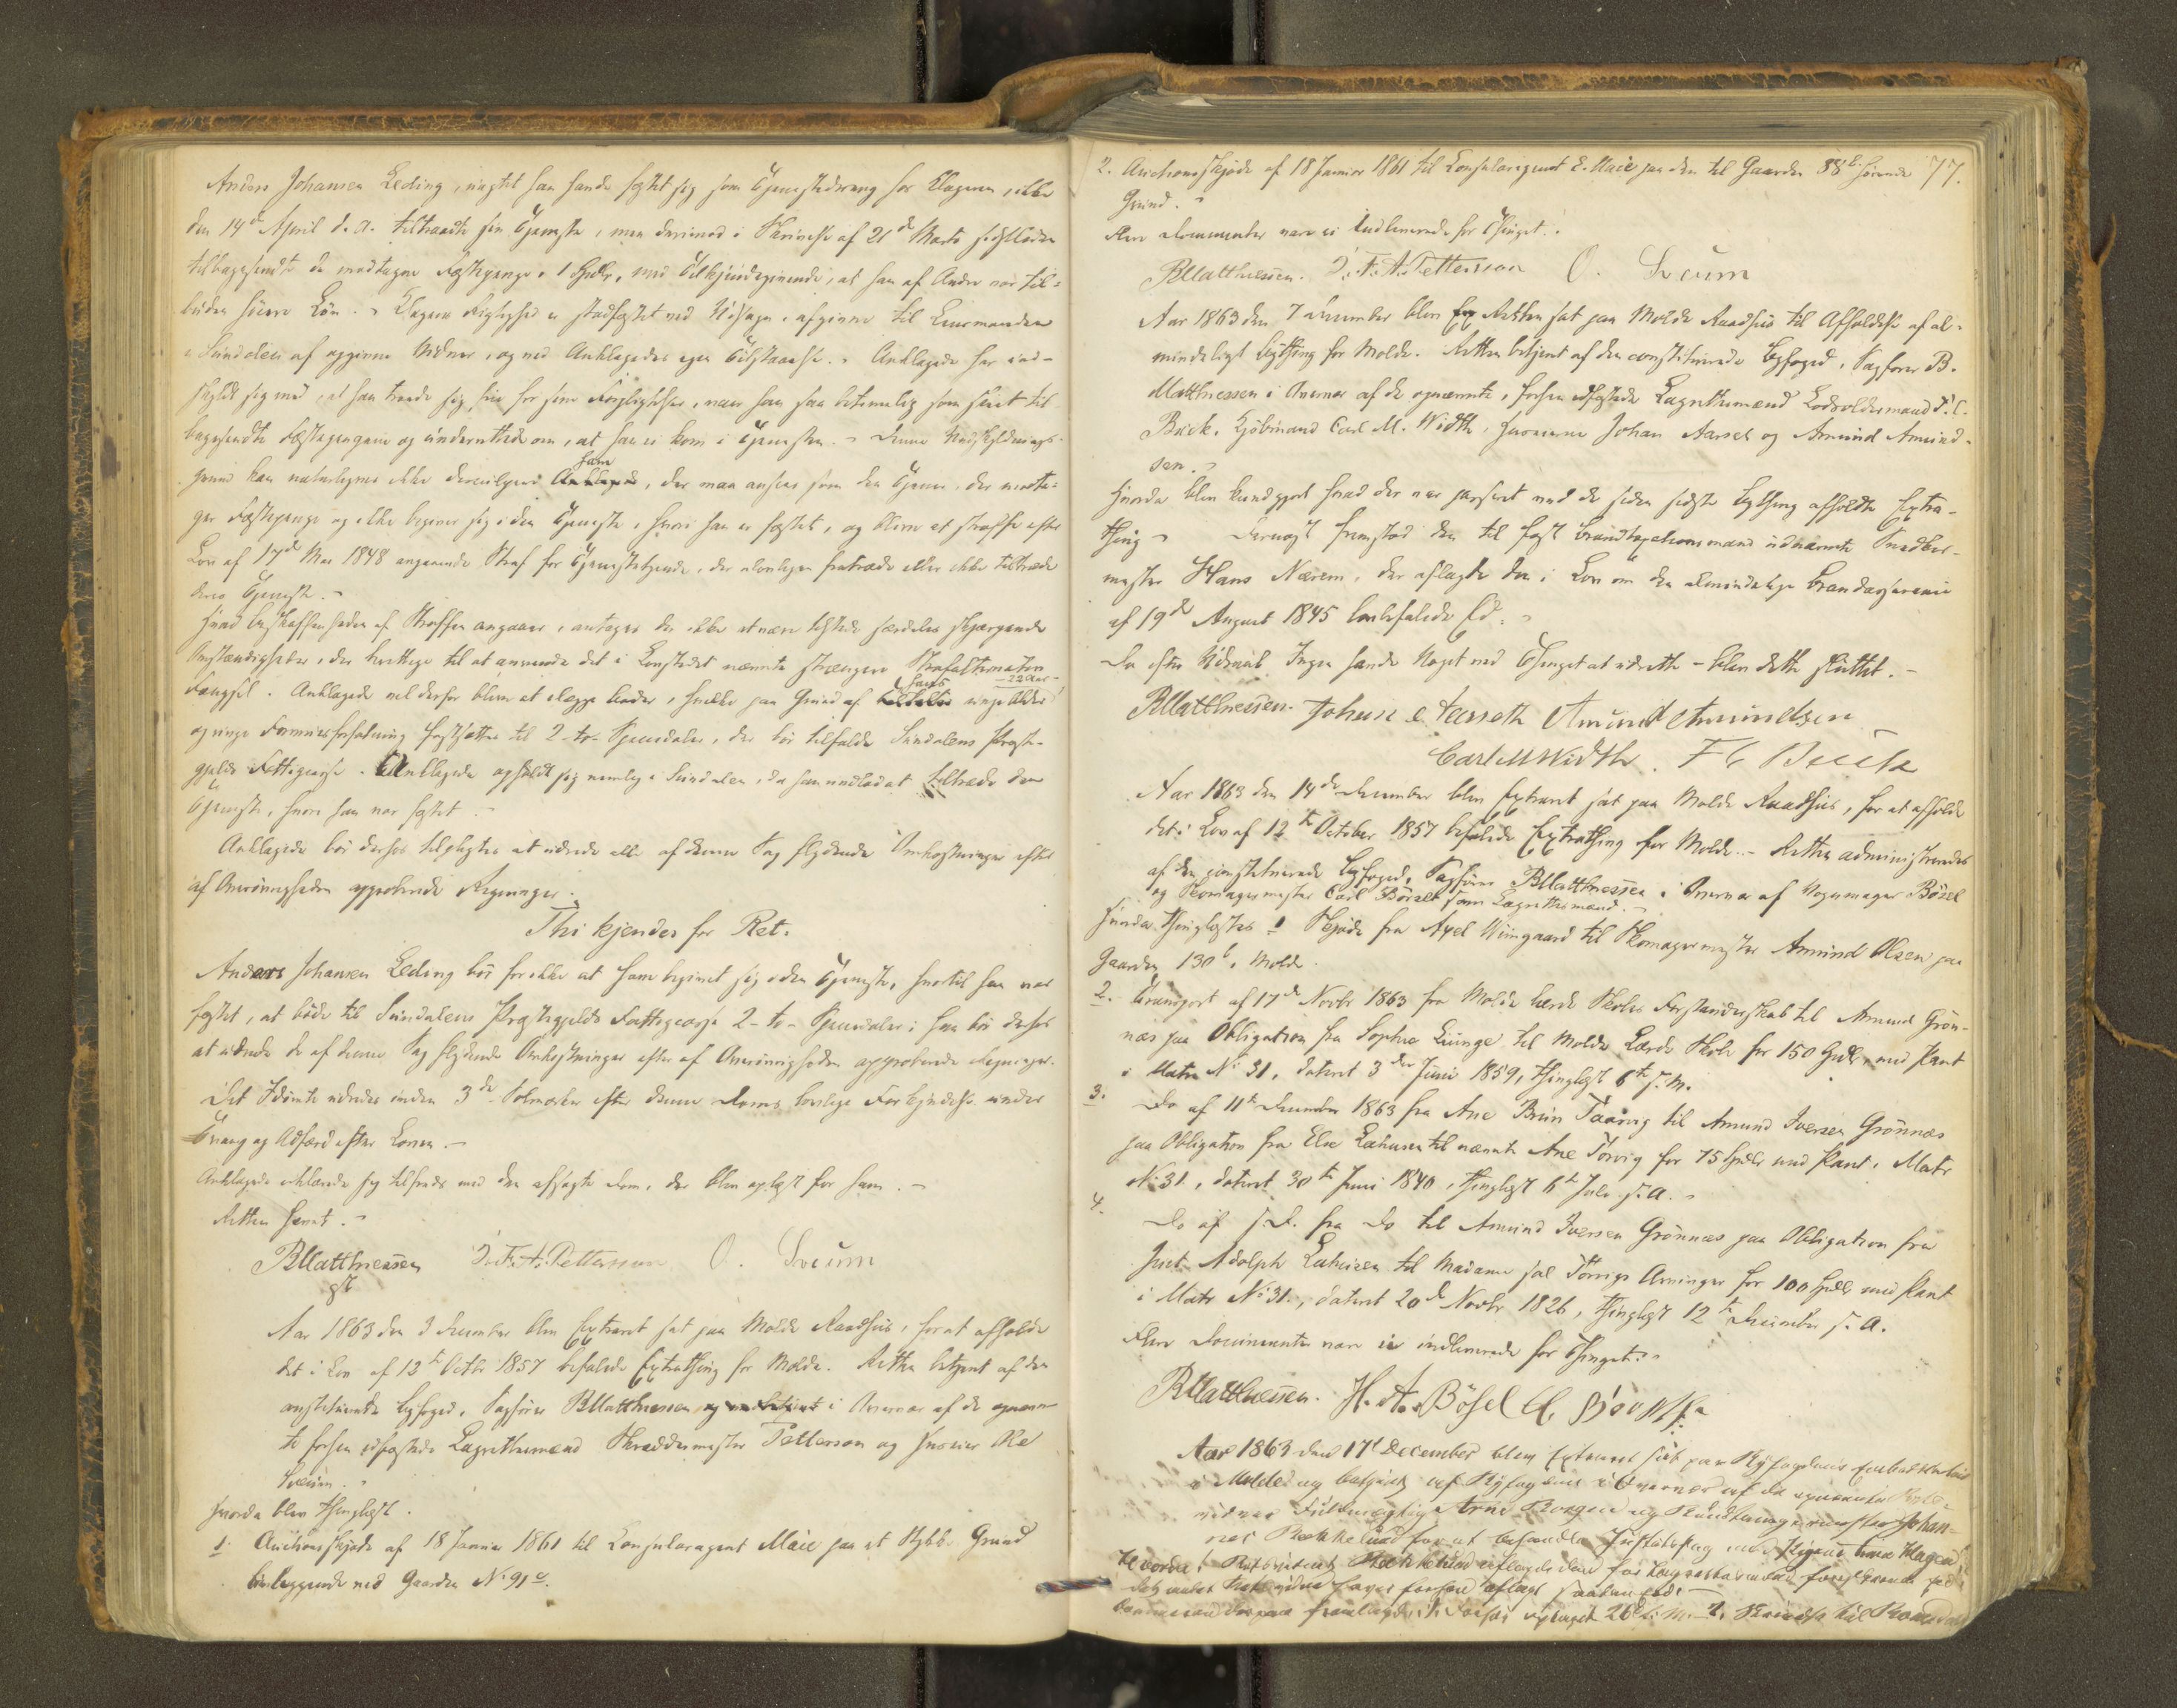 Anders Johansen Leding, uagtet han havde fæstet sig som Tjenestedreng hos Klageren, ikke
den 14de April d. A. tiltraadte sin Tjeneste, men derimod i Skrivelse af 21de Marts
tilbagesendte de modtagne Fæstepenge, 1 Spdlr, med Tilkjendegivende, at han af Andre var til-
buden høiere Løn. Klagens Rigtighed er stadfæstet ved Udsagn, afgivne til Lensmanden
i Sundalen af opgivne Vidner, og ved Anklagedes egen Tilstaaelse. Anklagede har und-
skyldt sig med, at han troede sig fri for sine Forpligtelser, naar han saa betimelig som skeet til-
bagesendte Fæstepengene og underrettede om, at han ei kom i Tjenesten. Denne Undskyldnings-
grund kan naturligvis ikke diculpere ham, der maa ansees som den Tjener, der modta-
ger Fæstepenge og ikke begiver sig i den Tjeneste, hvori han er fæstet, og blive at straffe efter
Lov af 17de Mai 1848 angaaende Straf for Tjenestetyende, der ulovligen fratræde eller ikke tiltræde
deres Tjeneste.
Hvad Beskaffenheden af Straffen angaaer, antages der ikke at være tilstede særdeles skjærpende
Omstændigheder, der berettige til at anvende det i Lovstedet nævnte strængere Strafalternativ
Fængsel. Anklagede vil derfor blive at ilægge Bøder, hvilke paa Grund af hans unge Alder - 22 Aar -
og ringe Formuesforfatning fastsættes til 2 - to - Speciedaler, der bør tilfalde Sundalens Præste-
gjelds Fattigcasse. Anklagede opholdt sig nemlig i Sundalen, da han undlod at tiltræde den
Tjeneste, hvori han var fæstet.
Anklagede bør derhos tilpligtes at udrede alle af denne Sag flydende Omkostninger efter
af Øvrigheden approberede Regninger.
Thi kjendes for Ret:
Anders Johansen Leding bør for ikke at have begivet sig i den Tjeneste, hvortil han var
fæstet, at bøde til Sundalens Præstegjelds Fattigcasse 2 - to - Speciedaler; han bør derhos
at udrede de af denne Sag flydende Omkostninger efter af Øvrigheden approberede Regninger.
Det Idømte udredes inden 3de Solmerker efter denne Doms lovlige Forkyndelse under
Tvang og Adfærd efter Loven.
Anklagede erklærede sig tilfreds med den afsagte Dom, der blev oplæst for ham.
Retten hævet.
BMatthiessen J. F. A. Pettersson O. Sveum
gst
Aar 1863 den 3 December blev Extraret sat paa Molde Raadhuus, for at afholde
det i Lov af 12te Octbr 1857 befalede Extrathing for Molde. Retten betjent af den
constituerede Byfoged, Sagfører BMatthiessen i Overvær af de opnævn-
te forhen edfæstede Lagrettesmænd Skræddermester Petterson og Huseier Ole
Sveum.
Hvorda blev thinglæst.
1. Auctionsskjøde af 18 Januar 1861 til Consularagent Maie paa et Stykke Grund
beliggende ved Gaarden No 91c.
77.
2. Auctionsskjøde af 18 Januar 1861 til Consularagent E. Maie paa den til Gaarden 88b hørende
Grund.
Flere Documenter vare ei indleverede for Thinget.
BMatthiessen. J. F. A. Pettersson O. Sveum
Aar 1863 den 7 December blev Retten sat paa Molde Raadhuus til Afholdelse af al-
mindeligt Bything for Molde. Retten betjent af den constituerede Byfoged, Sagfører B.
Matthiessen i Overvær af de opnævnte, forhen edfæstede Lagrettesmænd Lodsoldermand F. C.
Buck, Kjøbmand Carl M. Width, Huseierne Johan Aarseth og Amund Amund-
sen.
Hvorda blev kundgjort hvad der var passeret ved de siden sidste Bything afholdte Extra-
thing. Dernæst fremstod den til fast Brandtaxationsmand udnævnte Snedker-
mester Hans Nærem, der aflagde den i Lov om den almindelige Brandassurance
af 19de August 1845 befalede Ed.
Da efter Udraab Ingen havde Noget ved Thinget at udrette - blev dette sluttet.
BMatthiessen. Johan Aarseth Amund Amundsen
Carl M Width. F C Buck
Aar 1863 den 14de December blev Extraret sat paa Molde Raadhuus, for at afholde
det i Lov af 12te October 1857 befalede Extrathing for Molde. Retten administreredes
af den constituerede Byfoged, Sagfører BMatthiessen i Overvær af Vognmager Bösel
og Skomagermester Carl Börset som Lagrettesmænd.
Hvorda thinglæstes 1 Skjøde fra Axel Wiingaard til Skomagermester Amund Olsen paa
Gaarden 130b, Molde.
2. Transport af 17de Novbr 1863 fra Molde lærde Skoles Forstanderskab til Amund Grön-
næs paa Obligation fra Sophie Luinge til Molde Lærde Skole for 150 Spdlr, med Pant
i Matr No 31, dateret 3die Juni 1859, thinglæst 6te s. M.
3. Do af 11te December 1863 fra Ane Brun Taarvig til Amund Iversen Grönnæs
paa Obligation fra Else Lahusen til nævnte Ane Törvig for 75 Spdlr med Pant i Matr
No 31, dateret 30te Juni 1840, thinglæst 6te Juli s. A.
4. Do af s. D. fra Do til Amund Iversen Grönnæs paa Obligation fra
Just Adolph Lahusen til Madame sal Törrigs Arvinger for 100 Spdlr med Pant
i Matr No 31, dateret 20de Novbr 1826, thinglæst 12te December s. A.
Flere Documenter vare ei indleverede for Thinget.
BMatthiessen. H. A. Bösel C. Börset
Aar 1863 den 17de December blev Extraret sat paa Byfogdens Embedskontoir
i Molde og betjent af Byfogden i Overvær af de opnævnte Rets-
vidner Fuldmægtig Arne Borgen og Bundtmagermester Johan-
nes Bækkelund for at behandle Justitssag
Hvorda Retsvidnet Bækkelund aflagde den for Lagrettesmænd foreskrevne Ed,
det andet Retsvidne havde forhen aflagt saadan Ed.